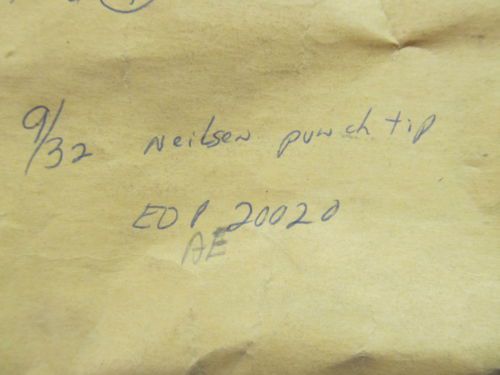 9/32 Neilsen punch tip
EDP 20020
AE